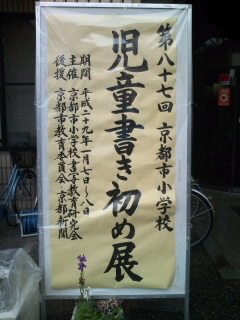 第八十七回 京都市小学校
児童書き初め展
期間 平成二十九年一月七日〜八日
主催 京都市小学校書写教育研究会
後援 京都市教育委員会・京都新聞